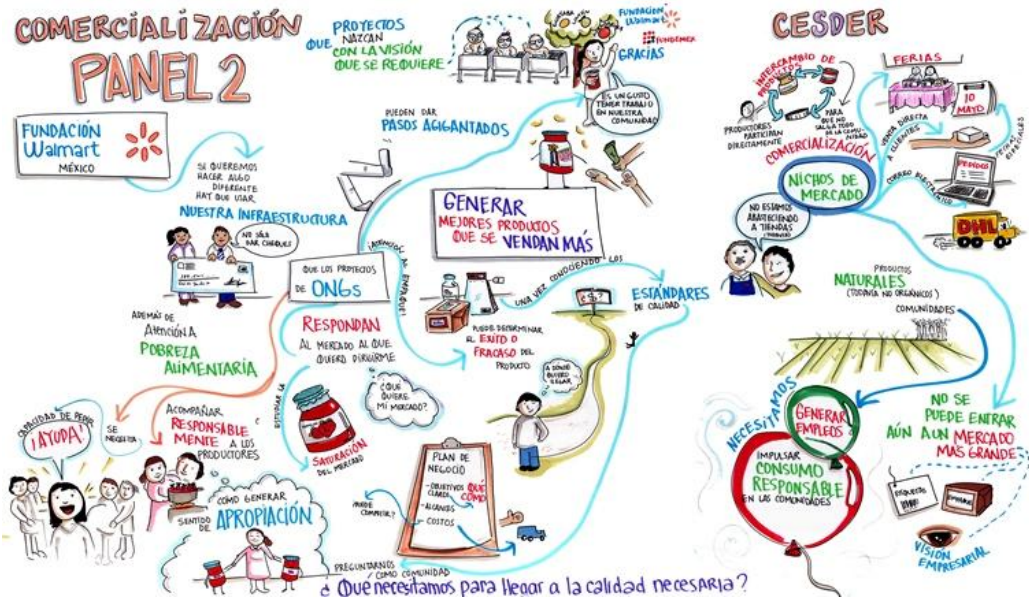 COMERCIALIZACIÓN
PANEL 2
FUNDACIÓN
Walmart
MÉXICO
SI QUEREMOS
HACER ALGO
DIFERENTE
HAY QUE USAR
NUESTRA INFRAESTRUCTURA
NO SÓLO
DAR CHEQUES
QUE LOS PROYECTOS
DE ONGs
ADEMÁS DE
ATENCIÓN A
POBREZA
ALIMENTARIA
CAPACIDAD DE PEDIR
¡AYUDA!
SE
NECESITA
ACOMPAÑAR
RESPONSABLE
MENTE A LOS
PRODUCTORES
CÓMO GENERAR
SENTIDO DE
APROPIACIÓN
RESPONDAN
AL MERCADO AL QUE
QUIERO DIRIGIRME
ESTUDIAR LA
SATURACIÓN
DEL MERCADO
¿QUÉ
QUIERE
MI MERCADO?
QUE PROYECTOS
NAZCAN
CON LA VISIÓN
QUE SE REQUIERE
FUNDACIÓN
Walmart
FUNDEMEX
GRACIAS
ES UN GUSTO
TENER TRABAJO
EN NUESTRA
COMUNIDAD
PUEDEN DAR
PASOS AGIGANTADOS
GENERAR
MEJORES PRODUCTOS
QUE SE VENDAN MÁS
¡ATENCIÓN AL EMPAQUE!
PUEDE DETERMINAR
EL ÉXITO O
FRACASO DEL
PRODUCTO
UNA VEZ CONOCIENDO LOS
ESTÁNDARES
DE CALIDAD
A DÓNDE
QUIERO
LLEGAR
PLAN DE
NEGOCIO
-OBJETIVOS QUE
CLAROS CÓMO
-ALCANCES
-COSTOS
¿PUEDE
COMPETIR?
PREGUNTARNOS
COMO COMUNIDAD
¿Qué necesitamos para llegar a la calidad necesaria?
CESDER
INTERCAMBIO DE
PRODUCTOS
PRODUCTORES
PARTICIPAN
DIRECTAMENTE
PARA QUE NO
SALGA TODO
DE LA COMU
NIDAD
COMERCIALIZACIÓN
NICHOS DE
MERCADO
FERIAS
10
MAYO
FECHAS
ESPECIALES
VENTA DIRECTA
A CLIENTES
PEDIDO
CORREO ELECTRÓNICO
DHL
NO ESTAMOS
ABASTECIENDO
A TIENDAS
PRODUCTOS
NATURALES
(TODAVÍA NO ORGÁNICOS)
COMUNIDADES
NECESITAMOS
GENERAR
EMPLEOS
IMPULSAR
CONSUMO
RESPONSABLE
EN LAS COMUNIDADES
NO SE
PUEDE ENTRAR
AÚN A UN MERCADO
MÁS GRANDE
ETIQUETA
EMPAQUE
VISIÓN
EMPRESARIAL